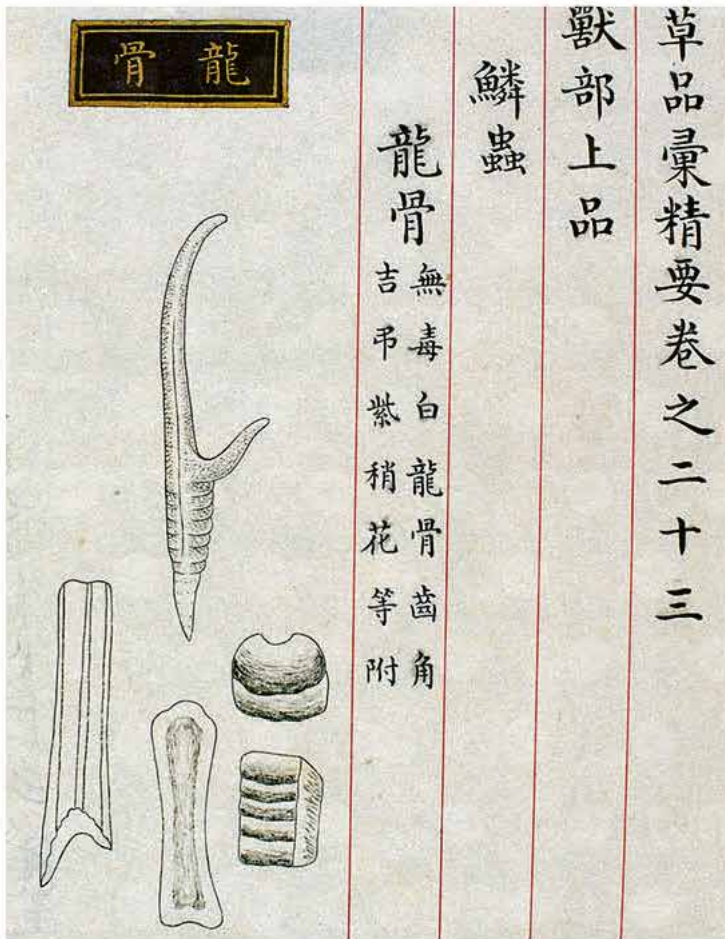 草品彙精要卷之二十三
獸部上品
鱗蟲
龍骨
無毒白龍骨齒角
吉弔紫稍花等附
龍骨